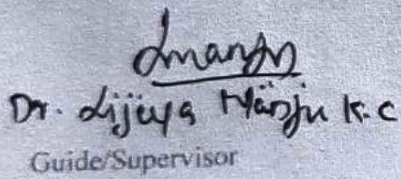 Dr. Lijiya Manju K.C
Guide/Supervisor